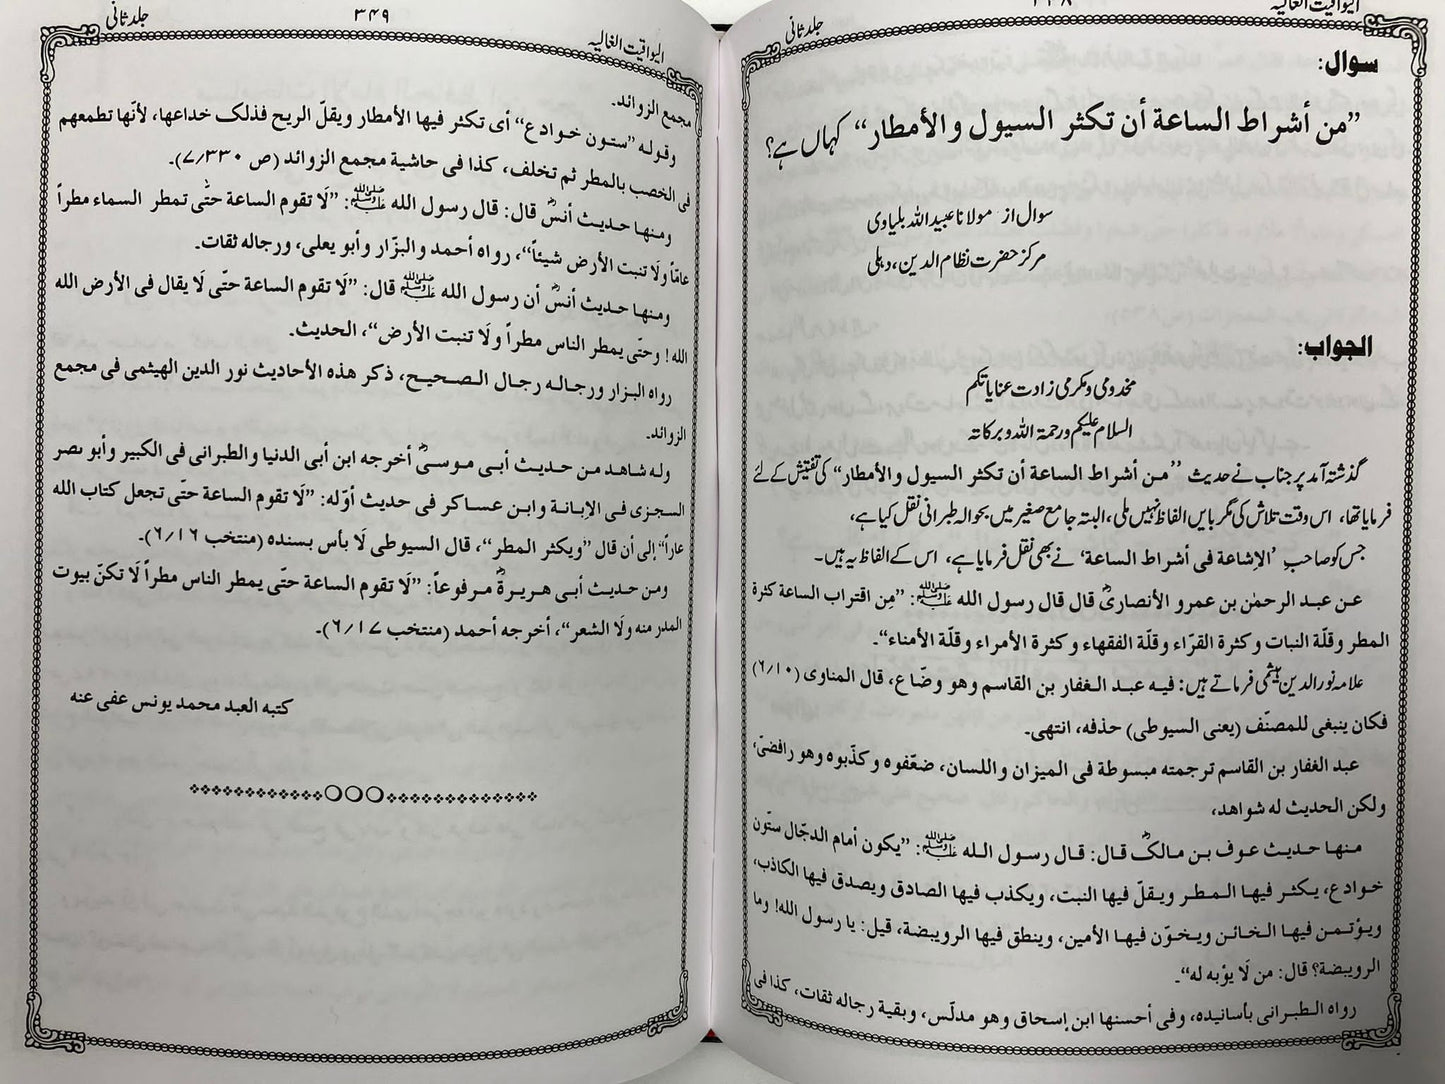 الیواقیت الغالیہ
۳۴۸
جلد ثانی
سوال:
”من أشراط الساعة أن تكثر السيول والأمطار“ کہاں ہے؟
سوال از مولانا عبید اللہ بلیاوی
مرکز حضرت نظام الدین، دہلی
الجواب:
مخدومی ومکرمی زادت عنایاتکم
السلام علیکم ورحمۃ اللہ وبرکاتہ
گذشتہ آمد پر جناب نے حدیث ”من أشراط الساعة أن تكثر السيول والأمطار“ کی تفتیش کے لئے
فرمایا تھا، اس وقت تلاش کی مگر بایں الفاظ نہیں ملی، البتہ جامع صغیر میں بحوالہ طبرانی نقل کیا ہے،
جس کو صاحبِ ’الإشاعة فى أشراط الساعة‘ نے بھی نقل فرمایا ہے، اس کے الفاظ یہ ہیں۔
عن عبد الرحمٰن بن عمرو الأنصارىؓ قال قال رسول الله ﷺ: ”مِن اقتراب الساعة كثرة
المطر وقلّة النبات وكثرة القرّاء وقلّة الفقهاء وكثرة الأمراء وقلّة الأمناء“۔
علامہ نورالدین ہیثمی فرماتے ہیں: فيه عبد الغفار بن القاسم وهو وضّاع، قال المناوى (۶/۱۰)
فكان ينبغى للمصنّف (يعنى السيوطى) حذفه، انتهى۔
عبد الغفار بن القاسم ترجمته مبسوطة فى الميزان واللسان، ضعّفوه وكذّبوه وهو رافضىّ،
ولكن الحديث له شواهد،
منها حديث عوف بن مالكؓ قال: قال رسول الله ﷺ: ”يكون أمام الدجّال ستّون
خوادع، يكثر فيها المطر ويقلّ فيها النبت، ويكذب فيها الصادق ويصدق فيها الكاذب،
ويؤتمن فيها الخائن ويخوّن فيها الأمين، وينطق فيها الرويبضة، قيل: يا رسول الله! وما
الرويبضة؟ قال: من لَا يؤبه له“۔
رواه الطبرانى بأسانيده، وفى أحسنها ابن إسحاق وهو مدلّس، وبقية رجاله ثقات، كذا فى
الیواقیت الغالیہ
۳۴۹
جلد ثانی
مجمع الزوائد۔
وقوله ”ستون خوادع“ أى تكثر فيها الأمطار ويقلّ الريح فذلك خداعها، لأنّها تطمعهم
فى الخصب بالمطر ثم تخلف، كذا فى حاشية مجمع الزوائد (ص ۷/۳۳۰)۔
ومنها حديث أنسؓ قال: قال رسول الله ﷺ: ”لَا تقوم الساعة حتّٰى تمطر السماء مطراً
عامّاً ولَا تنبت الأرض شيئاً“، رواه أحمد والبزّار وأبو يعلى، ورجاله ثقات۔
ومنها حديث أنسؓ أن رسول الله ﷺ قال: ”لَا تقوم الساعة حتّى لَا يقال فى الأرض الله
الله! وحتّى يمطر الناس مطراً ولَا تنبت الأرض“، الحديث۔
رواه البزار ورجاله رجال الصحيح، ذكر هذه الأحاديث نور الدين الهيثمى فى مجمع
الزوائد۔
وله شاهد من حديث أبى موسىؓ أخرجه ابن أبى الدنيا والطبرانى فى الكبير وأبو نصر
السجزى فى الإبانة وابن عساكر فى حديث أوّله: ”لَا تقوم الساعة حتّى تجعل كتاب الله
عاراً“ إلى أن قال ”ويكثر المطر“، قال السيوطى لَا بأس بسنده (منتخب ۶/۱۶)۔
ومن حديث أبى هريرةؓ مرفوعاً: ”لَا تقوم الساعة حتّى يمطر الناس مطراً لَا تكنّ بيوت
المدر منه ولَا الشعر“، أخرجه أحمد (منتخب ۶/۱۷)۔
كتبه العبد محمد يونس عفى عنه